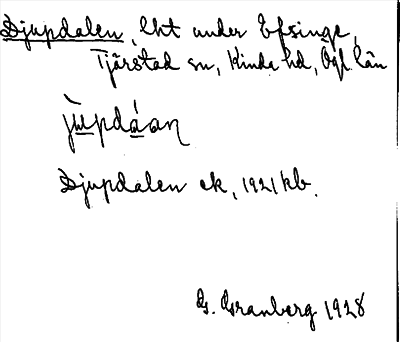 Djupdalen, lht under Efsinge,
Tjärstad sn, Kinda hd, Ögl. län
jùpdáan
Djupdalen ek, 1921 kb.
G. Granberg 1928